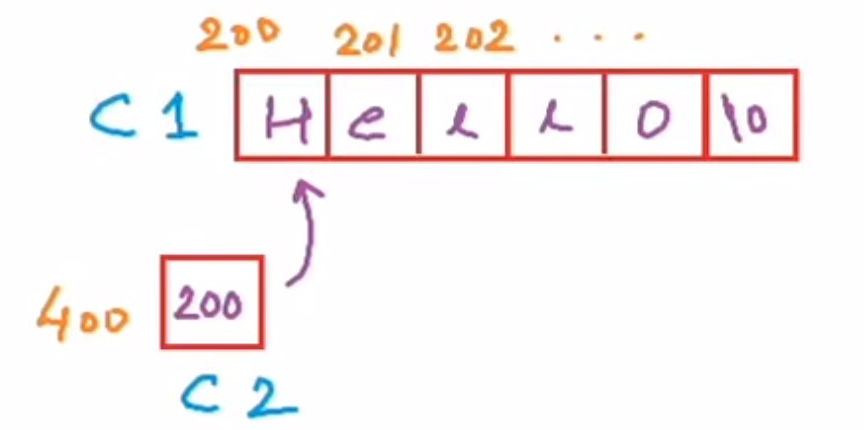 200 201 202 . . .
C1 H e l l o \0
400 200
C2